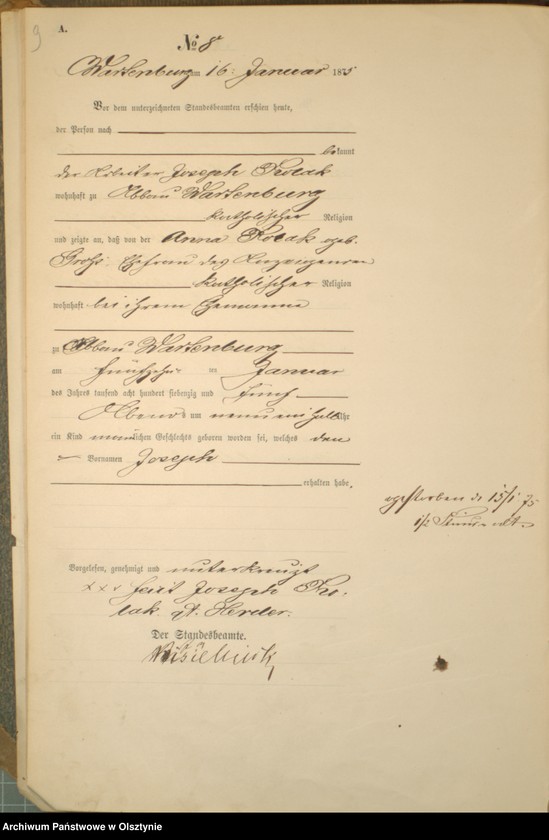 9
A.
№ 8
Wartenburg am 16. Januar 1875
Vor dem unterzeichneten Standesbeamten erschien heute,
der Person nach
bekannt
der Arbeiter Joseph
wohnhaft zu Abbau Wartenburg
katholischer Religion
und zeigte an, daß von der Anna geb.
Ehefrau des Anzeigenden
katholischer Religion
wohnhaft bei ihrem Ehemanne
zu Abbau Wartenburg
am fünfzehn ten Januar
des Jahres tausend acht hundert siebenzig und fünf
Abends um neun ein halb Uhr
ein Kind männlichen Geschlechts geboren worden sei, welches den
Vornamen Joseph
erhalten habe.
gestorben d. 15/1 75
1/2 Stunde alt
Vorgelesen, genehmigt und unterkreuzt
xxx Joseph
Der Standesbeamte.
Archiwum Państwowe w Olsztynie